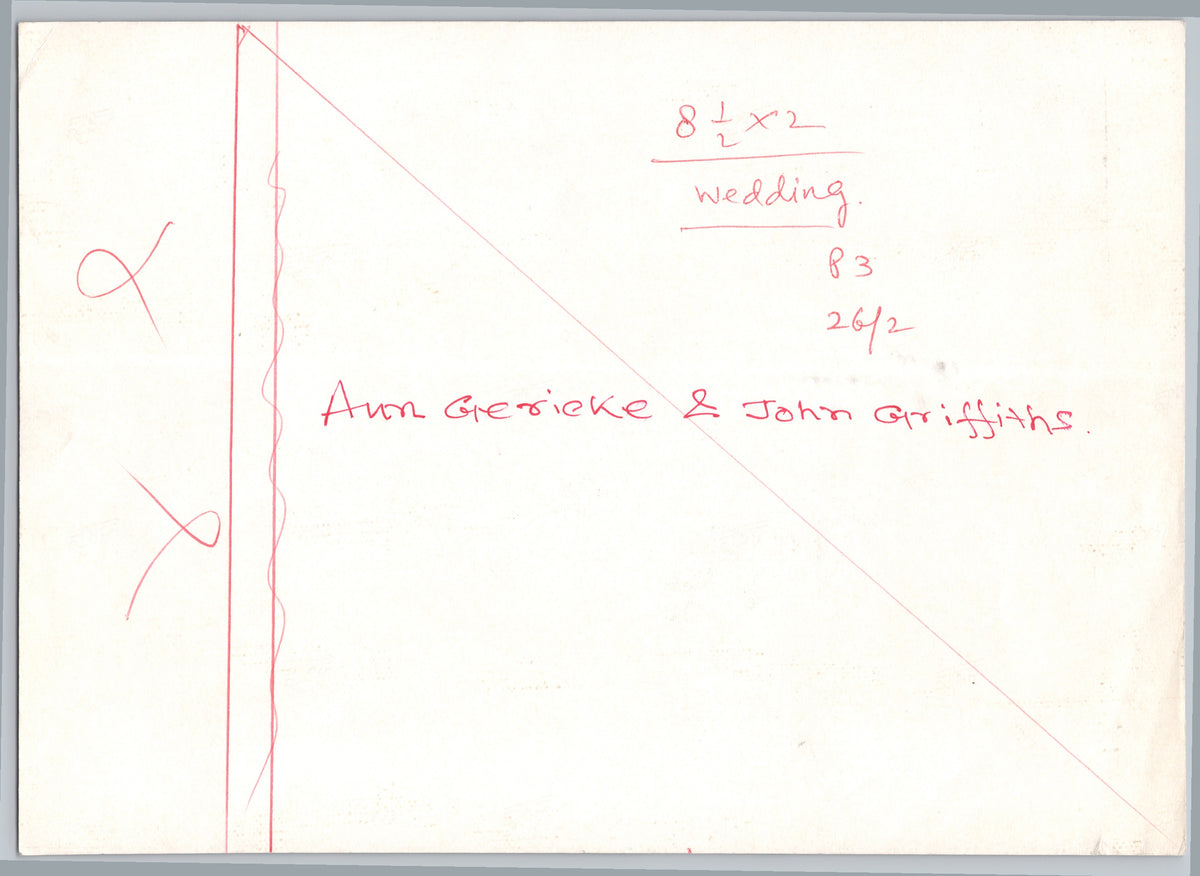 8 1/2 x 2
wedding.
P3
26/2
Ann Gericke & John Griffiths.